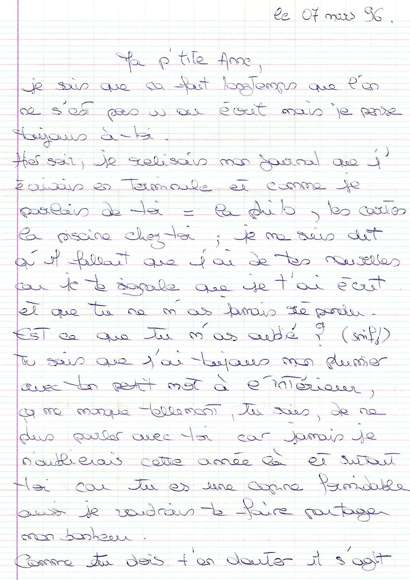 le 07 mars 96.
Ma p'tite Anne,
je sais que ça fait longtemps que l'on
ne s'est pas vu ou écrit mais je pense
toujours à toi.
Hier soir, je relisais mon journal que j'
écrivais en Terminale et comme je
parlais de toi = la philo, les cartes
la piscine chez toi ; je me suis dit
qu'il fallait que j'ai de tes nouvelles
car je te signale que je t'ai écrit
et que tu ne m'as jamais répondu.
Est ce que tu m'as oublié ? (snif!)
Tu sais que j'ai toujours mon plumier
avec ton petit mot à l'intérieur,
ça me manque tellement, tu sais, de ne
plus parler avec toi car jamais je
n'oublierais cette année là et surtout
toi car tu es une copine formidable
aussi je voudrais te faire partager
mon bonheur.
Comme tu dois t'en douter il s'agit